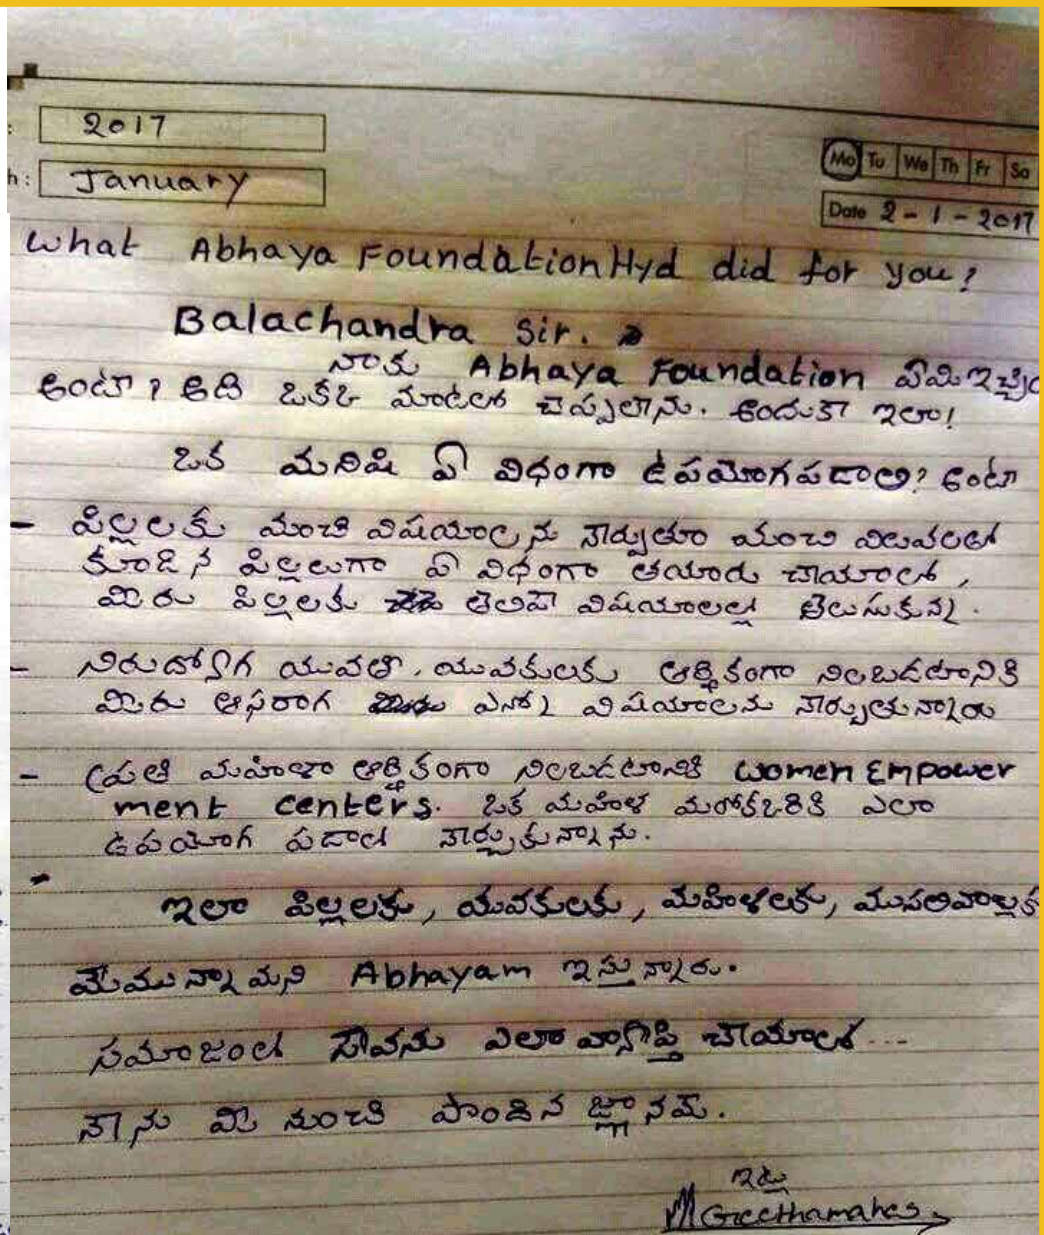 2017
h: January
Mo Tu We Th Fr Sa
Date 2-1-2017
What Abhaya Foundation Hyd did for you?
Balachandra Sir.
నాకు Abhaya Foundation ఏమి ఇచ్చిం
అంటా? అది ఒకే మాటలో చెప్పలేను. అందుకే ఇలా!
ఒక మనిషి ఏ విధంగా ఉపయోగపడాలి? అంటా
- పిల్లలకు మంచి విషయాలను నేర్పుతూ మంచి విలువలతో
కూడిన పిల్లలుగా ఏ విధంగా తయారు చేయాలో,
మీరు పిల్లలకు తెలిపే విషయాలల్ల తెలుసుకున్న.
- నిరుద్యోగ యువతీ, యువకులకు ఆర్థికంగా నిలబడటానికి
మీరు ఆసరాగ ఎన్నో విషయాలను నేర్పుతున్నారు
- ప్రతి మహిళా ఆర్థికంగా నిలబడటానికి Women Empower
ment centers. ఒక మహిళ మరోకఒరికి ఎలా
ఉపయోగ పడాలో నేర్చుకున్నాను.
-
ఇలా పిల్లలకు, యువకులకు, మహిళలకు, ముసలివాళ్లకు
మేమున్నామని Abhayam ఇస్తున్నారు.
సమాజంలో సేవను ఎలా వ్యాప్తి చేయాలో...
నేను మీ నుంచి పొందిన జ్ఞానమే.
ఇట్లు
M Geethamahes